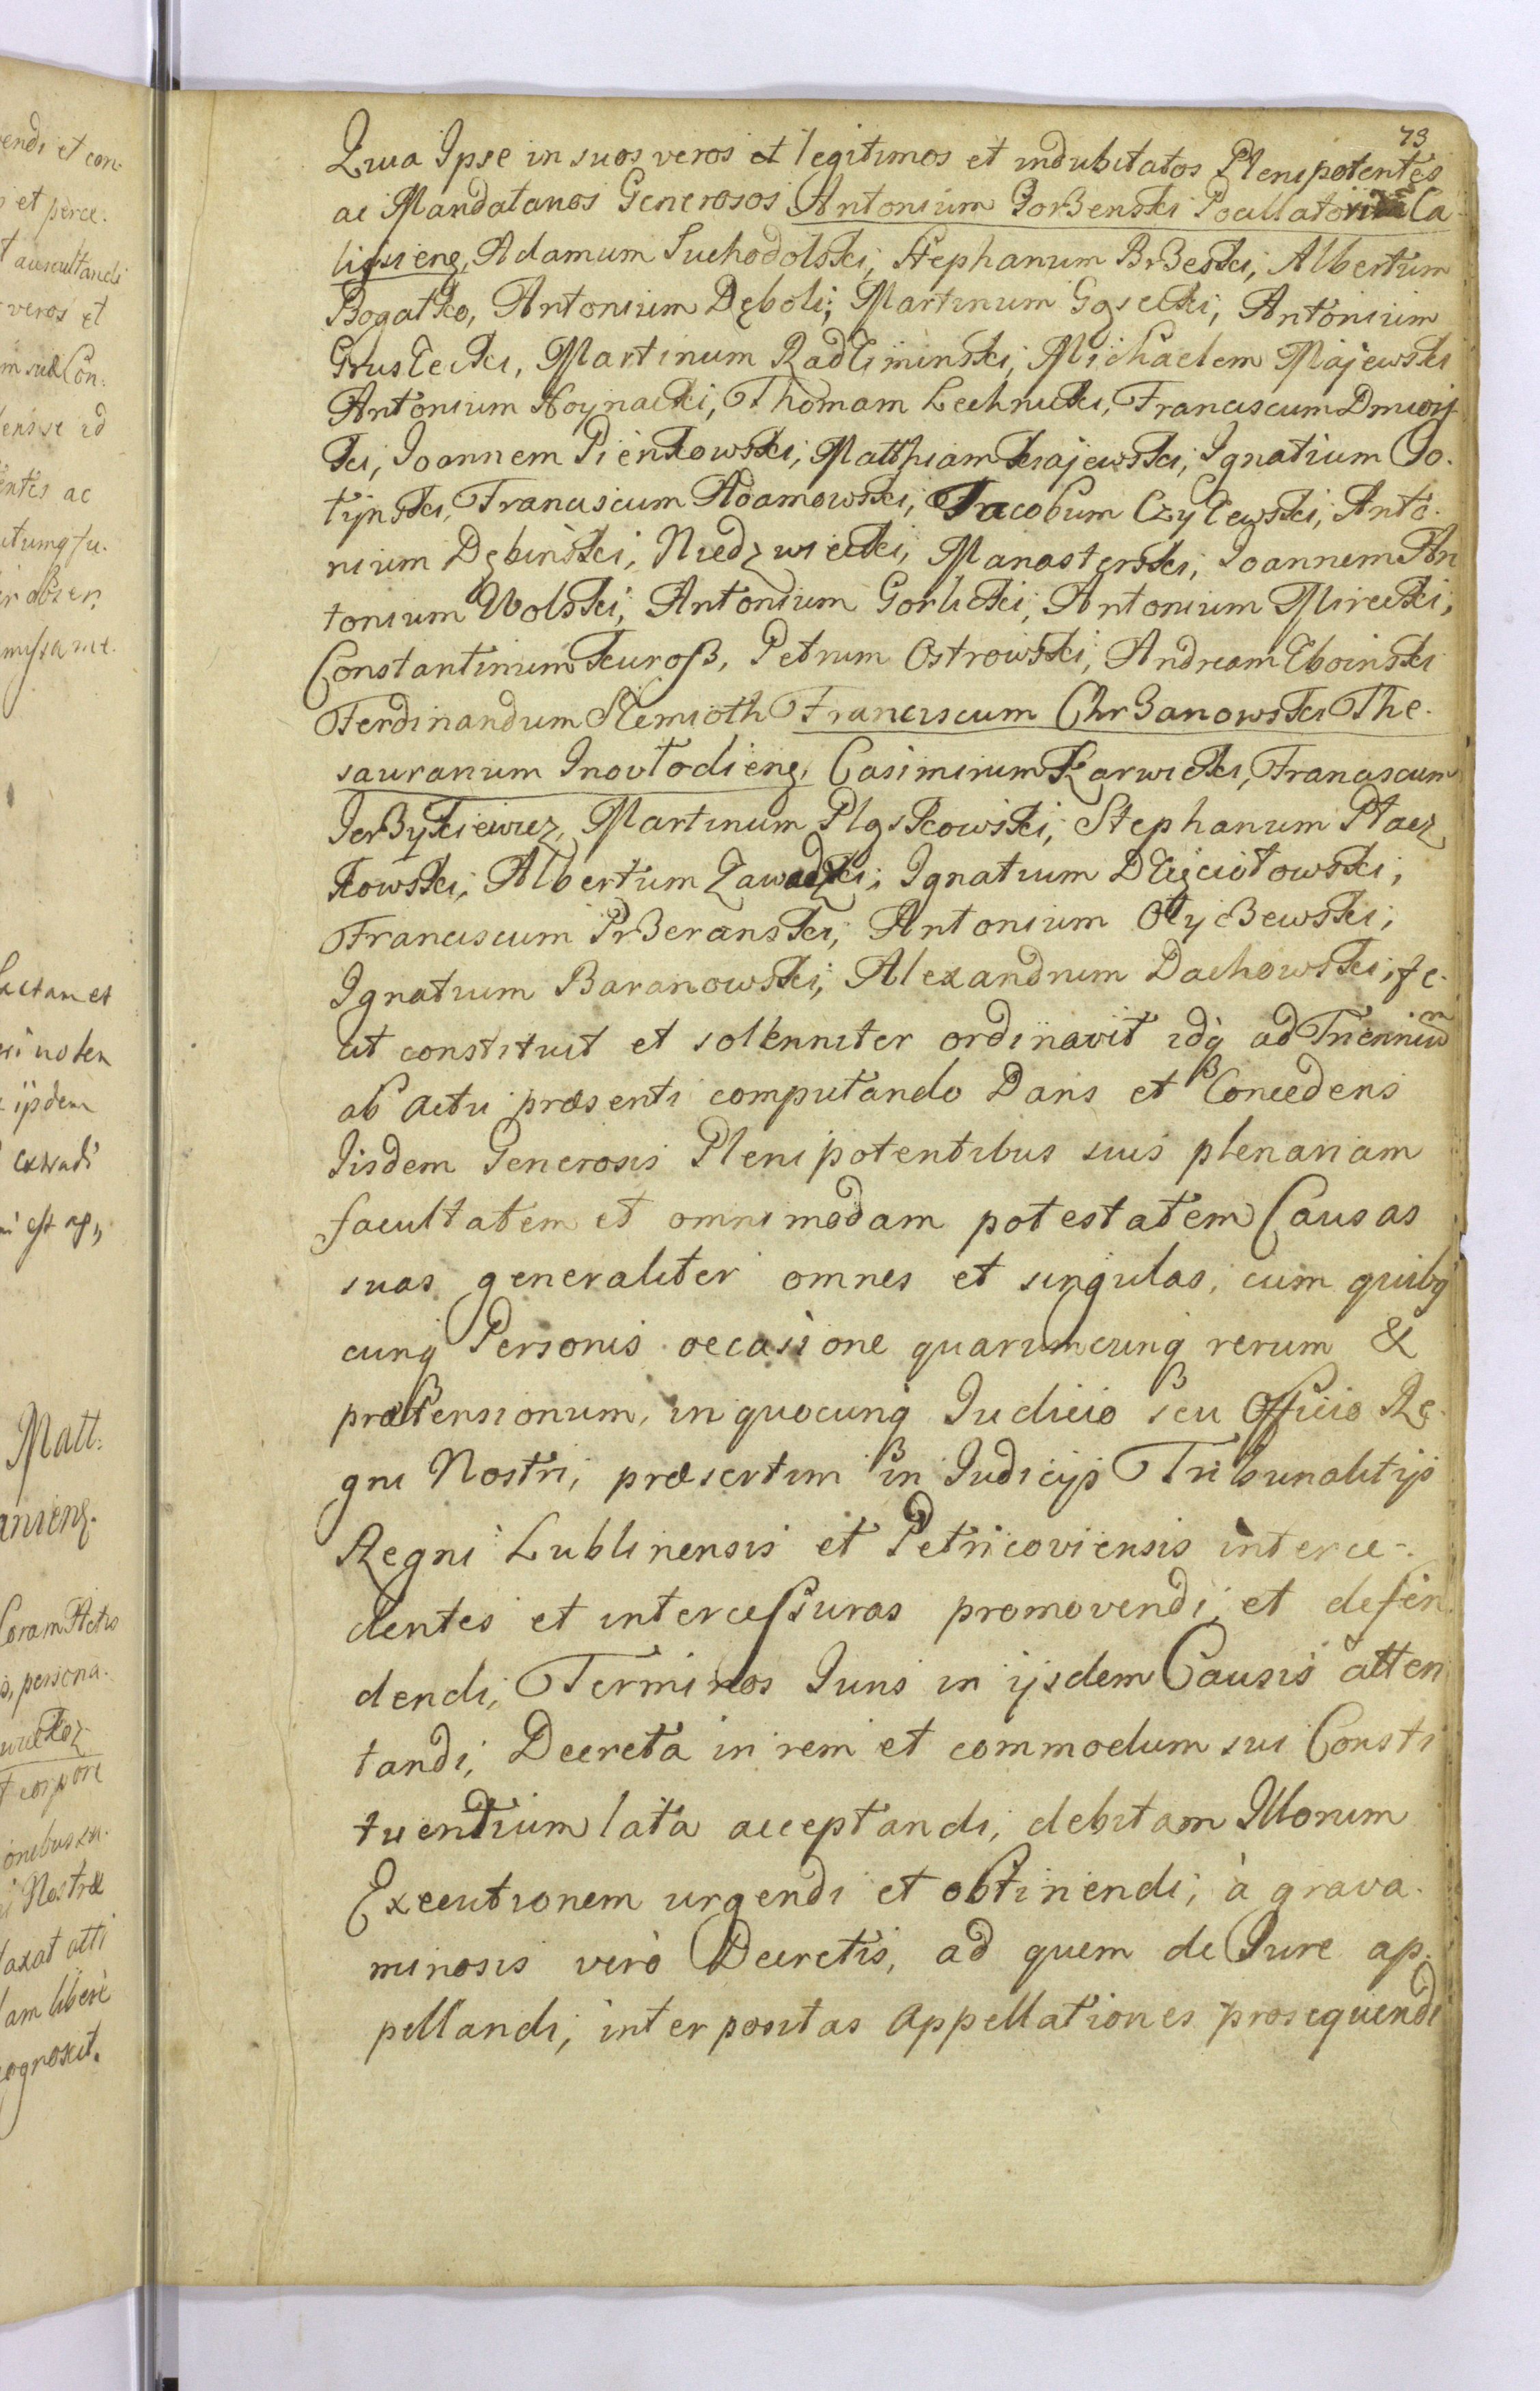 73
Quia Ipse in suos veros et legitimos et indubitatos Plenipotentes
ac Mandatarios Generosos Antonium Gorzenski Pocillatoridā Ca
lissień, Adamum Suchodolski, Stephanum Brzeski, Albertum
Bogatko, Antonium Dęboli, Martinum Gąsecki, Antonium
Gruszecki, Martinum Radziminski, Michaelem Majewski
Antonium Hoynacki, Thomam Lechnicki, Franciscum Dmoy
ski, Joannem Pieńkowski, Matthiam Kiajewski, Ignatium Go.
tynski, Franciscum Adamowski, Jacobum Czyżewski, Anto.
nium Dębinski, Niedzwiecki, Manasterski, Joannem An
tonium Wolski, Antonium Gorlicki, Antonium Mirecki,
Constantinum Kurosz, Petrum Ostrowski, Andream Eboinski
Ferdinandum Niemioth Franciscum Chrzanowski The.
saurarium Inovlodień, Casimirum Karwicki, Franciscum
Jerzykiewicz, Martinum Pląskowski, Stephanum Płacz
kowski, Albertum Zawadzki, Ignatium Dzięciołowski,
Franciscum Przeranski, Antonium Olyczewski,
Ignatium Baranowski, Alexandrum Dachowski, fe.
cit constituit et solenniter ordinavit idq́ ad Trienniū
ab actu præsenti computando Dans et Concedens
Iisdem Generosis Plenipotentibus suis plenariam
facultatem et omnimodam potestatem Causas
suas generaliter omnes et singulas, cum quibq́
cunq́ Personis occasione quarumcunq́ rerum &
prætensionum, in quocunq́ Judicio seu Officio Re.
gni Nostri, præsertim in Judicijs Tribunalitijs
Regni Lublinensis et Petricoviensis interce-
dentes et intercessuras promovendi, et defen
dendi, Terminos Juris in ijsdem Causis atten
tandi, Decreta in rem et commodum sui Consti
tuentium lata acceptandi, debitam Illorum
Executionem urgendi et obtinendi, à grava.
minosis verò Decretis, ad quem de Jure ap.
pellandi, interpositas Appellationes prosequendi